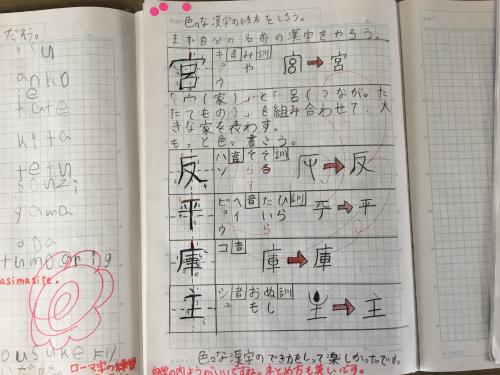 だろう。
su
anko
e
tate
kita
tetu
souzi
yama
asimasite.
ousuke
ローマ字の練習
色々な漢字のでき方をしろう。
まず自分の名前の漢字をやろう。
宮 キュウ 音 みや 訓 宮 → 宮
「宀(家)」と「呂(つながった
たてもの)」を組み合わせて、大
きな家を表わす。
もっと色々書こう。
反 ハン 音 そる そらす 訓 反 → 反
平 ビョウ ヘイ 音 たいら ひら 訓 平 → 平
庫 コ 音 庫 → 庫
主 シュ 音 おも ぬし 訓 主 → 主
色々な漢字のでき方をしって楽しかったです。
自学の内ようがいいですね。まとめ方も美しいです。